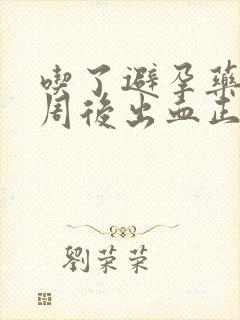 喫了避孕藥
周後出血正
劉榮榮